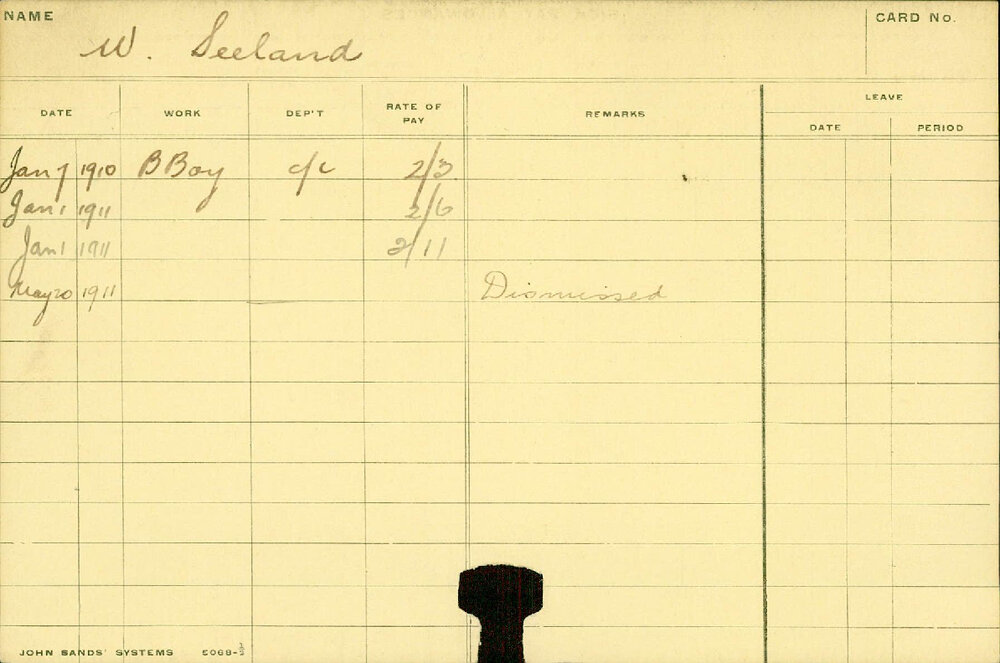 NAME
W. Seeland
CARD No.
DATE WORK DEP'T RATE OF PAY REMARKS LEAVE
DATE PERIOD
Jan 7 1910 B Boy c/c 2/3
Jan 1 1911 2/6
Jan 1 1911 2/11
May 20 1911 Dismissed
JOHN SANDS' SYSTEMS 5068-½